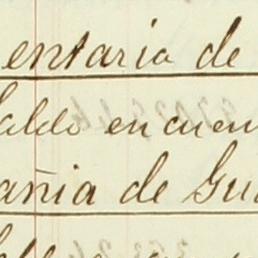 entaria de
aldo en cuen
añia de Gu